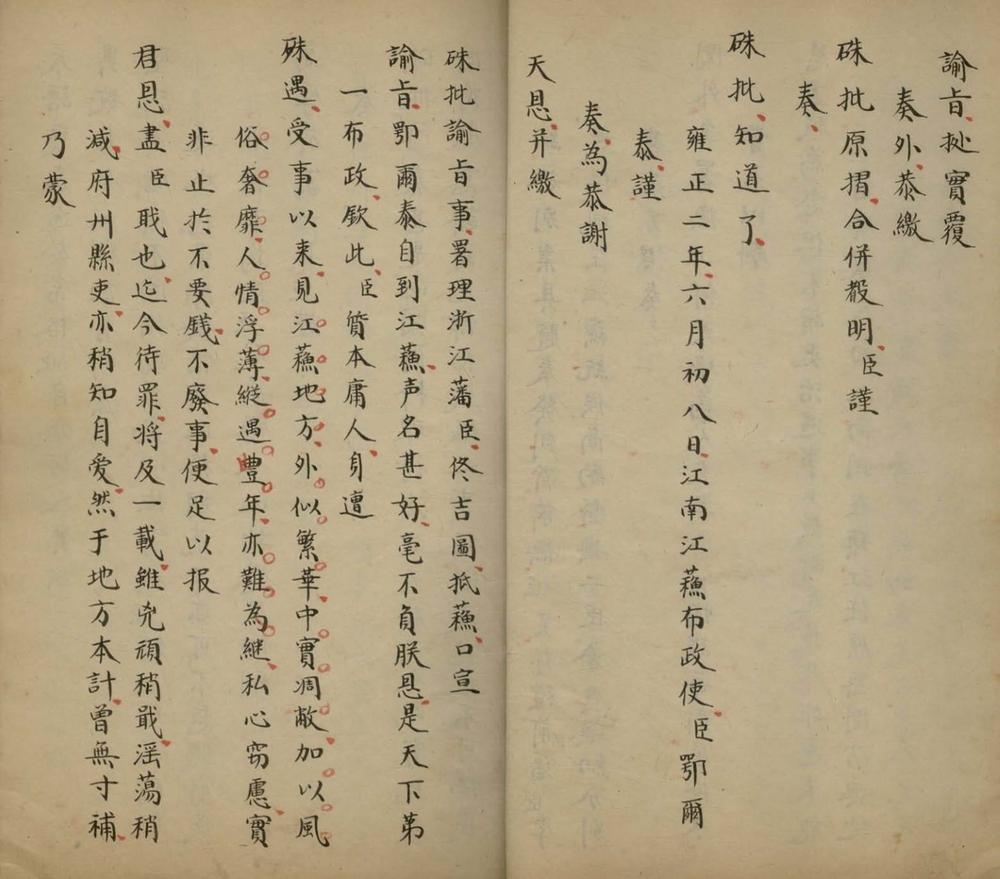 諭旨、挻實覆
奏外、恭繳
硃批原摺、合併聲明、臣謹
奏、
硃批、知道了、
雍正二年、六月初八日、江南江蘓布政使、臣鄂爾
泰、謹
奏、為恭謝
天恩、并繳
硃批諭旨事、署理浙江藩臣、佟吉圖、抵蘓、口宣
諭旨、鄂爾泰自到江蘓、声名甚好、毫不負朕恩、是天下第
一布政、欽此、臣質本庸人、身遭
殊遇、受事以来、見江蘓地方、外似繁華、中實凋敝、加以風
俗奢靡、人情浮薄、縱遇豐年、亦難為継、私心窃慮、實
非止於不要錢、不廢事、便足以报
君恩、盡臣職也、迄今待罪、将及一載、雖兇頑稍戢、淫蕩稍
減、府州縣吏、亦稍知自愛、然于地方本計、曾無寸補、
乃蒙